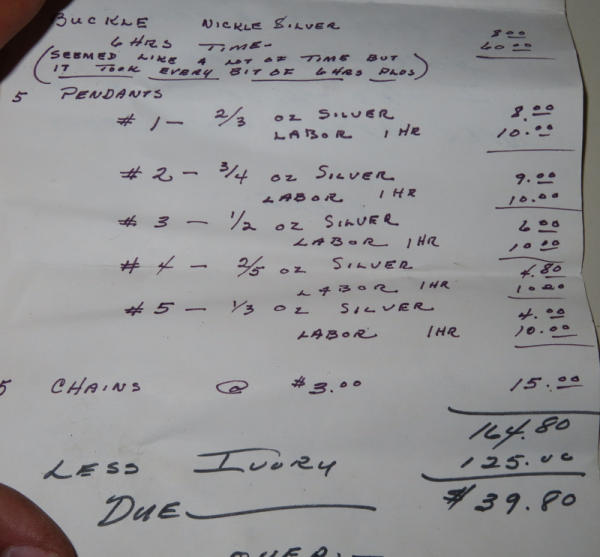 BUCKLE NICKLE SILVER 8.00
6 HRS TIME- 60.00
(SEEMED LIKE A LOT OF TIME BUT
IT TOOK EVERY BIT OF 6 HRS PLUS)
5 PENDANTS
# 1 - 2/3 OZ SILVER 8.00
LABOR 1 HR 10.00
# 2 - 3/4 OZ SILVER 9.00
LABOR 1 HR 10.00
# 3 - 1/2 OZ SILVER 6.00
LABOR 1 HR 10.00
# 4 - 2/5 OZ SILVER 4.80
LABOR 1 HR 10.00
# 5 - 1/3 OZ SILVER 4.00
LABOR 1 HR 10.00
5 CHAINS @ $3.00 15.00
164.80
LESS IVORY 125.00
DUE $39.80